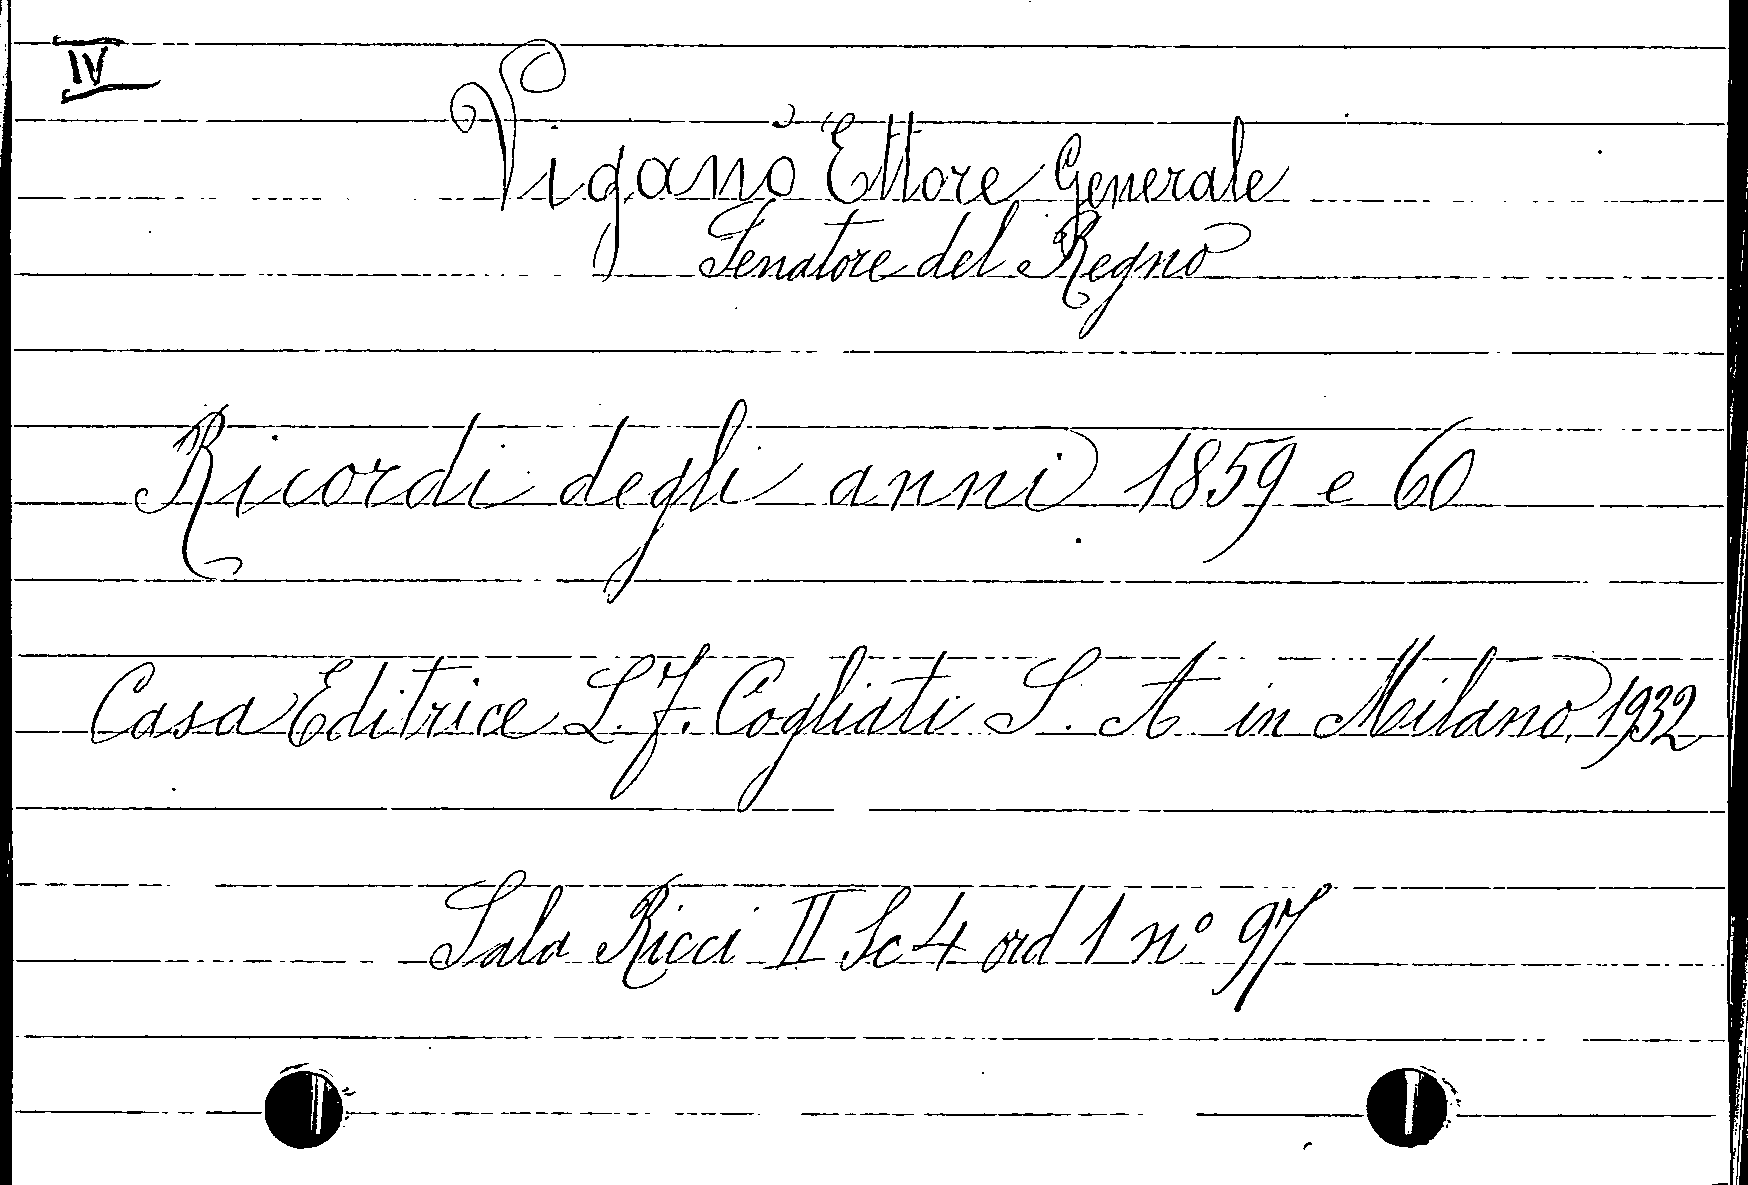 IV
Viganò Ettore Generale
Senatore del Regno
Ricordi degli anni 1859 e 60
Casa Editrice L. F. Cogliati S. A in Milano, 1932
Sala Ricci II Sc 4 ord 1 n° 97